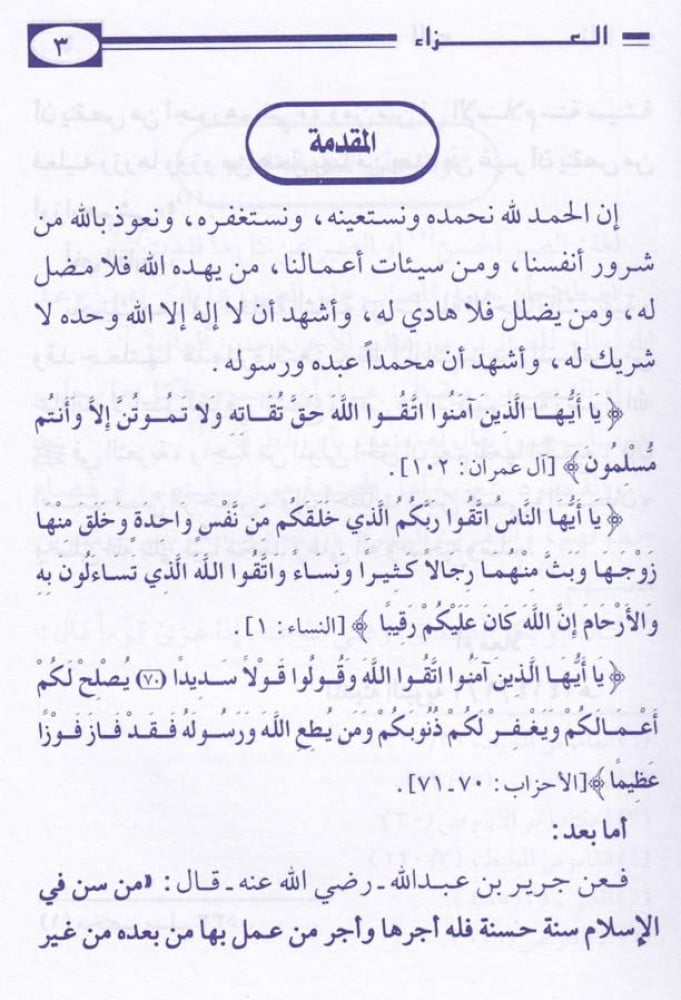 العـــــزاء
٣
المقدمة
إن الحمد لله نحمده ونستعينه، ونستغفره، ونعوذ بالله من
شرور أنفسنا، ومن سيئات أعمالنا، من يهده الله فلا مضل
له، ومن يضلل فلا هادي له، وأشهد أن لا إله إلا الله وحده لا
شريك له، وأشهد أن محمداً عبده ورسوله.
﴿يا أَيُّهَا الَّذِينَ آمَنُوا اتَّقُوا اللَّهَ حَقَّ تُقَاتِهِ وَلا تَمُوتُنَّ إِلاَّ وَأَنْتُم
مُّسْلِمُونَ﴾ [آل عمران: ١٠٢]
﴿يا أَيُّهَا النَّاسُ اتَّقُوا رَبَّكُمُ الَّذِي خَلَقَكُم مِّن نَّفْسٍ وَاحِدَةٍ وَخَلَقَ مِنْهَا
زَوْجَهَا وَبَثَّ مِنْهُمَا رِجَالًا كَثِيرًا وَنِسَاءً وَاتَّقُوا اللَّهَ الَّذِي تَسَاءَلُونَ بِهِ
وَالأَرْحَامَ إِنَّ اللَّهَ كَانَ عَلَيْكُمْ رَقِيبًا﴾ [النساء: ١].
﴿يَا أَيُّهَا الَّذِينَ آمَنُوا اتَّقُوا اللَّهَ وَقُولُوا قَوْلاً سَدِيدًا (٧٠) يُصْلِحْ لَكُمْ
أَعْمَالَكُمْ وَيَغْفِرْ لَكُمْ ذُنُوبَكُمْ وَمَن يُطِعِ اللَّهَ وَرَسُولَهُ فَقَدْ فَازَ فَوْزًا
عَظِيمًا﴾ [الأحزاب: ٧٠ـ٧١].
أما بعد:
فعن جرير بن عبدالله ـ رضي الله عنه ـ قال: «من سن في
الإسلام سنة حسنة فله أجرها وأجر من عمل بها من بعده من غير